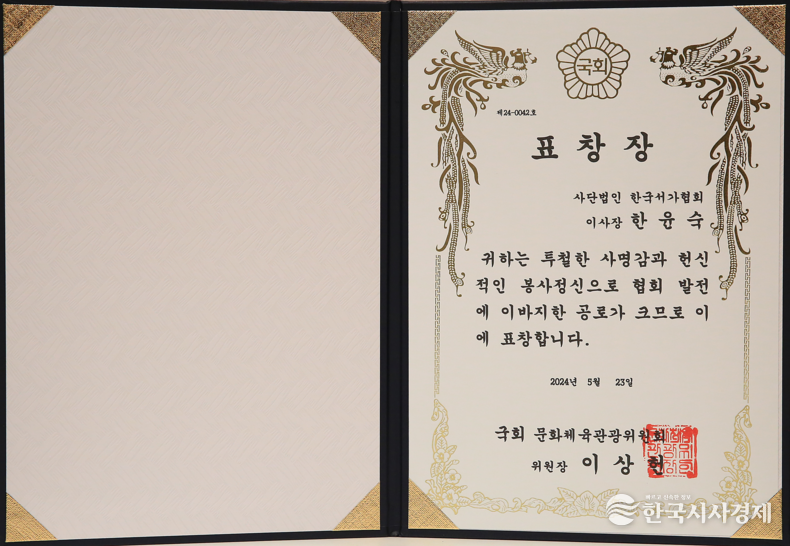 국회
제24-0042호
표창장
사단법인 한국서가협회
이사장 한윤숙
귀하는 투철한 사명감과 헌신
적인 봉사정신으로 협회 발전
에 이바지한 공로가 크므로 이
에 표창합니다.
2024년 5월 23일
국회 문화체육관광위원회
위원장 이상헌
빠르고 신속한 정보
한국시사경제